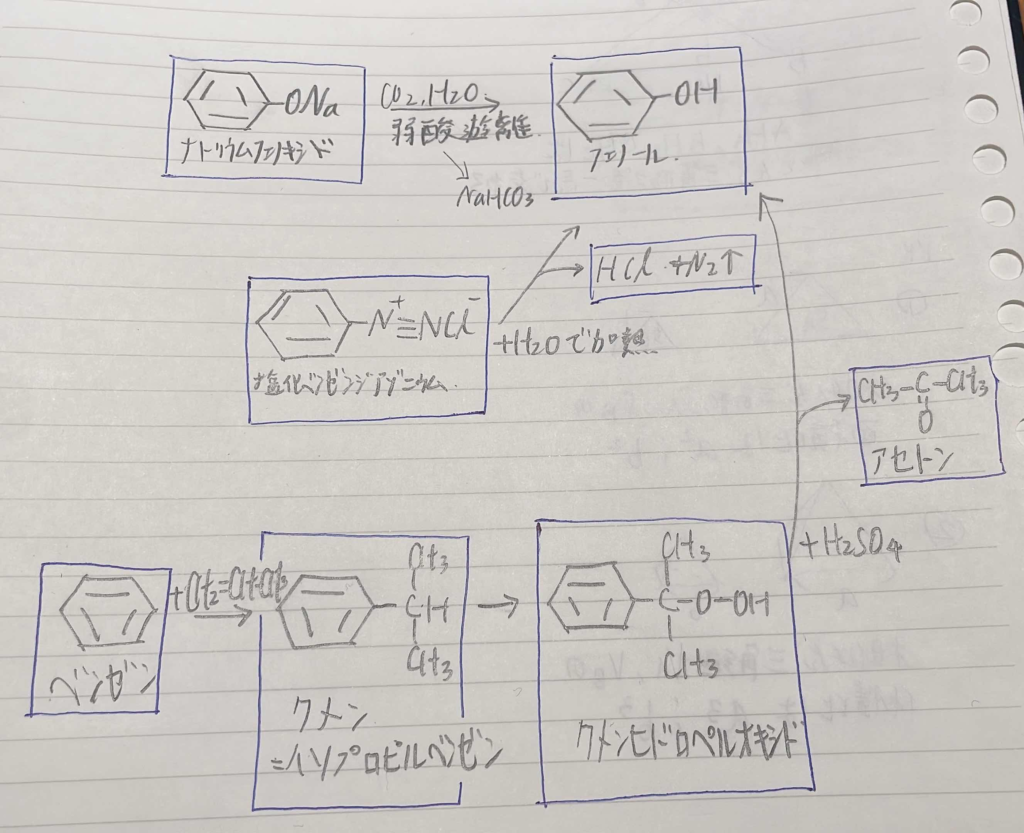 ONa
ナトリウムフェノキシド
CO2,H2O
弱酸遊離
NaHCO3
OH
フェノール
N+≡NCl-
塩化ベンゼンジアゾニウム
+H2Oで加熱
HCl+N2↑
CH3-C-CH3
O
アセトン
+H2SO4
ベンゼン
+CH2=CHCH3
CH3
CH
CH3
クメン
=イソプロピルベンゼン
CH3
C-O-OH
CH3
クメンヒドロペルオキシド